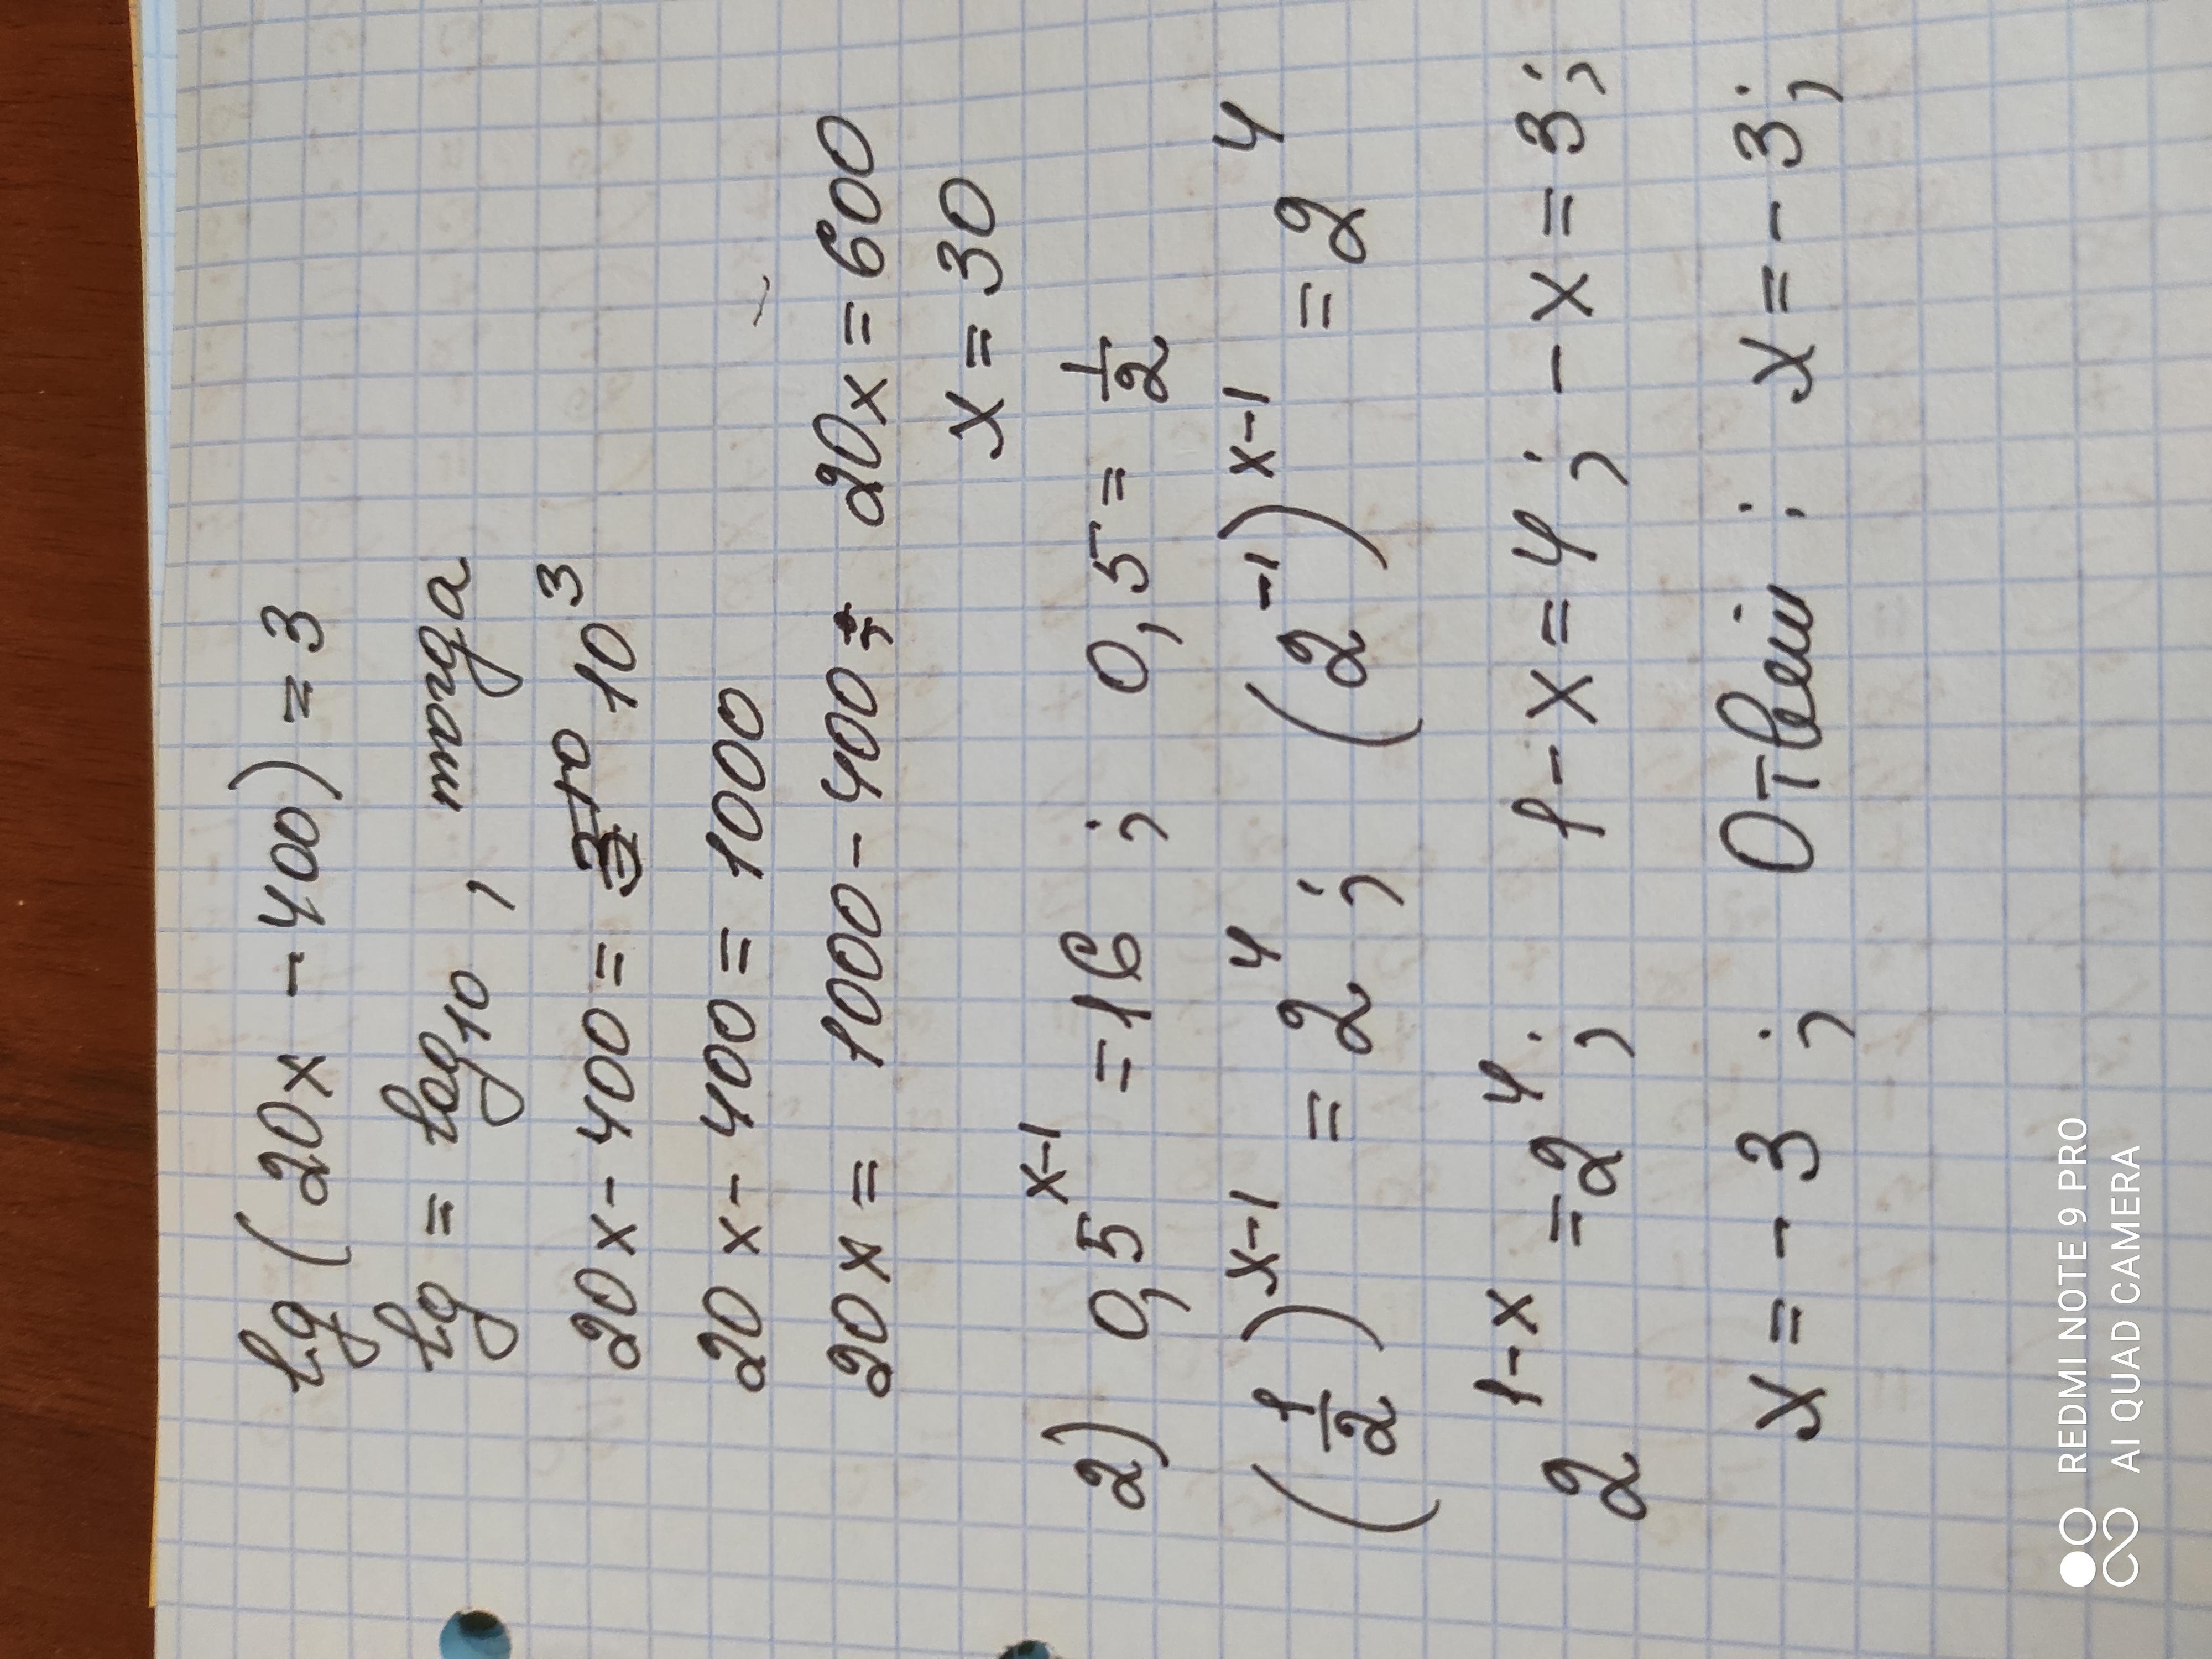 lg (20x - 400) = 3
lg = log₁₀, тогда
20x - 400 = 10³
20x - 400 = 1000
20x = 1000 - 400; 20x = 600
x = 30
2) 0,5ˣ⁻¹ = 16 ; 0,5 = 1/2
(1/2)ˣ⁻¹ = 2⁴; (2⁻¹)ˣ⁻¹ = 2⁴
2¹⁻ˣ = 2⁴; 1 - x = 4; - x = 3;
x = - 3 ; Ответ: x = - 3;
REDMI NOTE 9 PRO
AI QUAD CAMERA